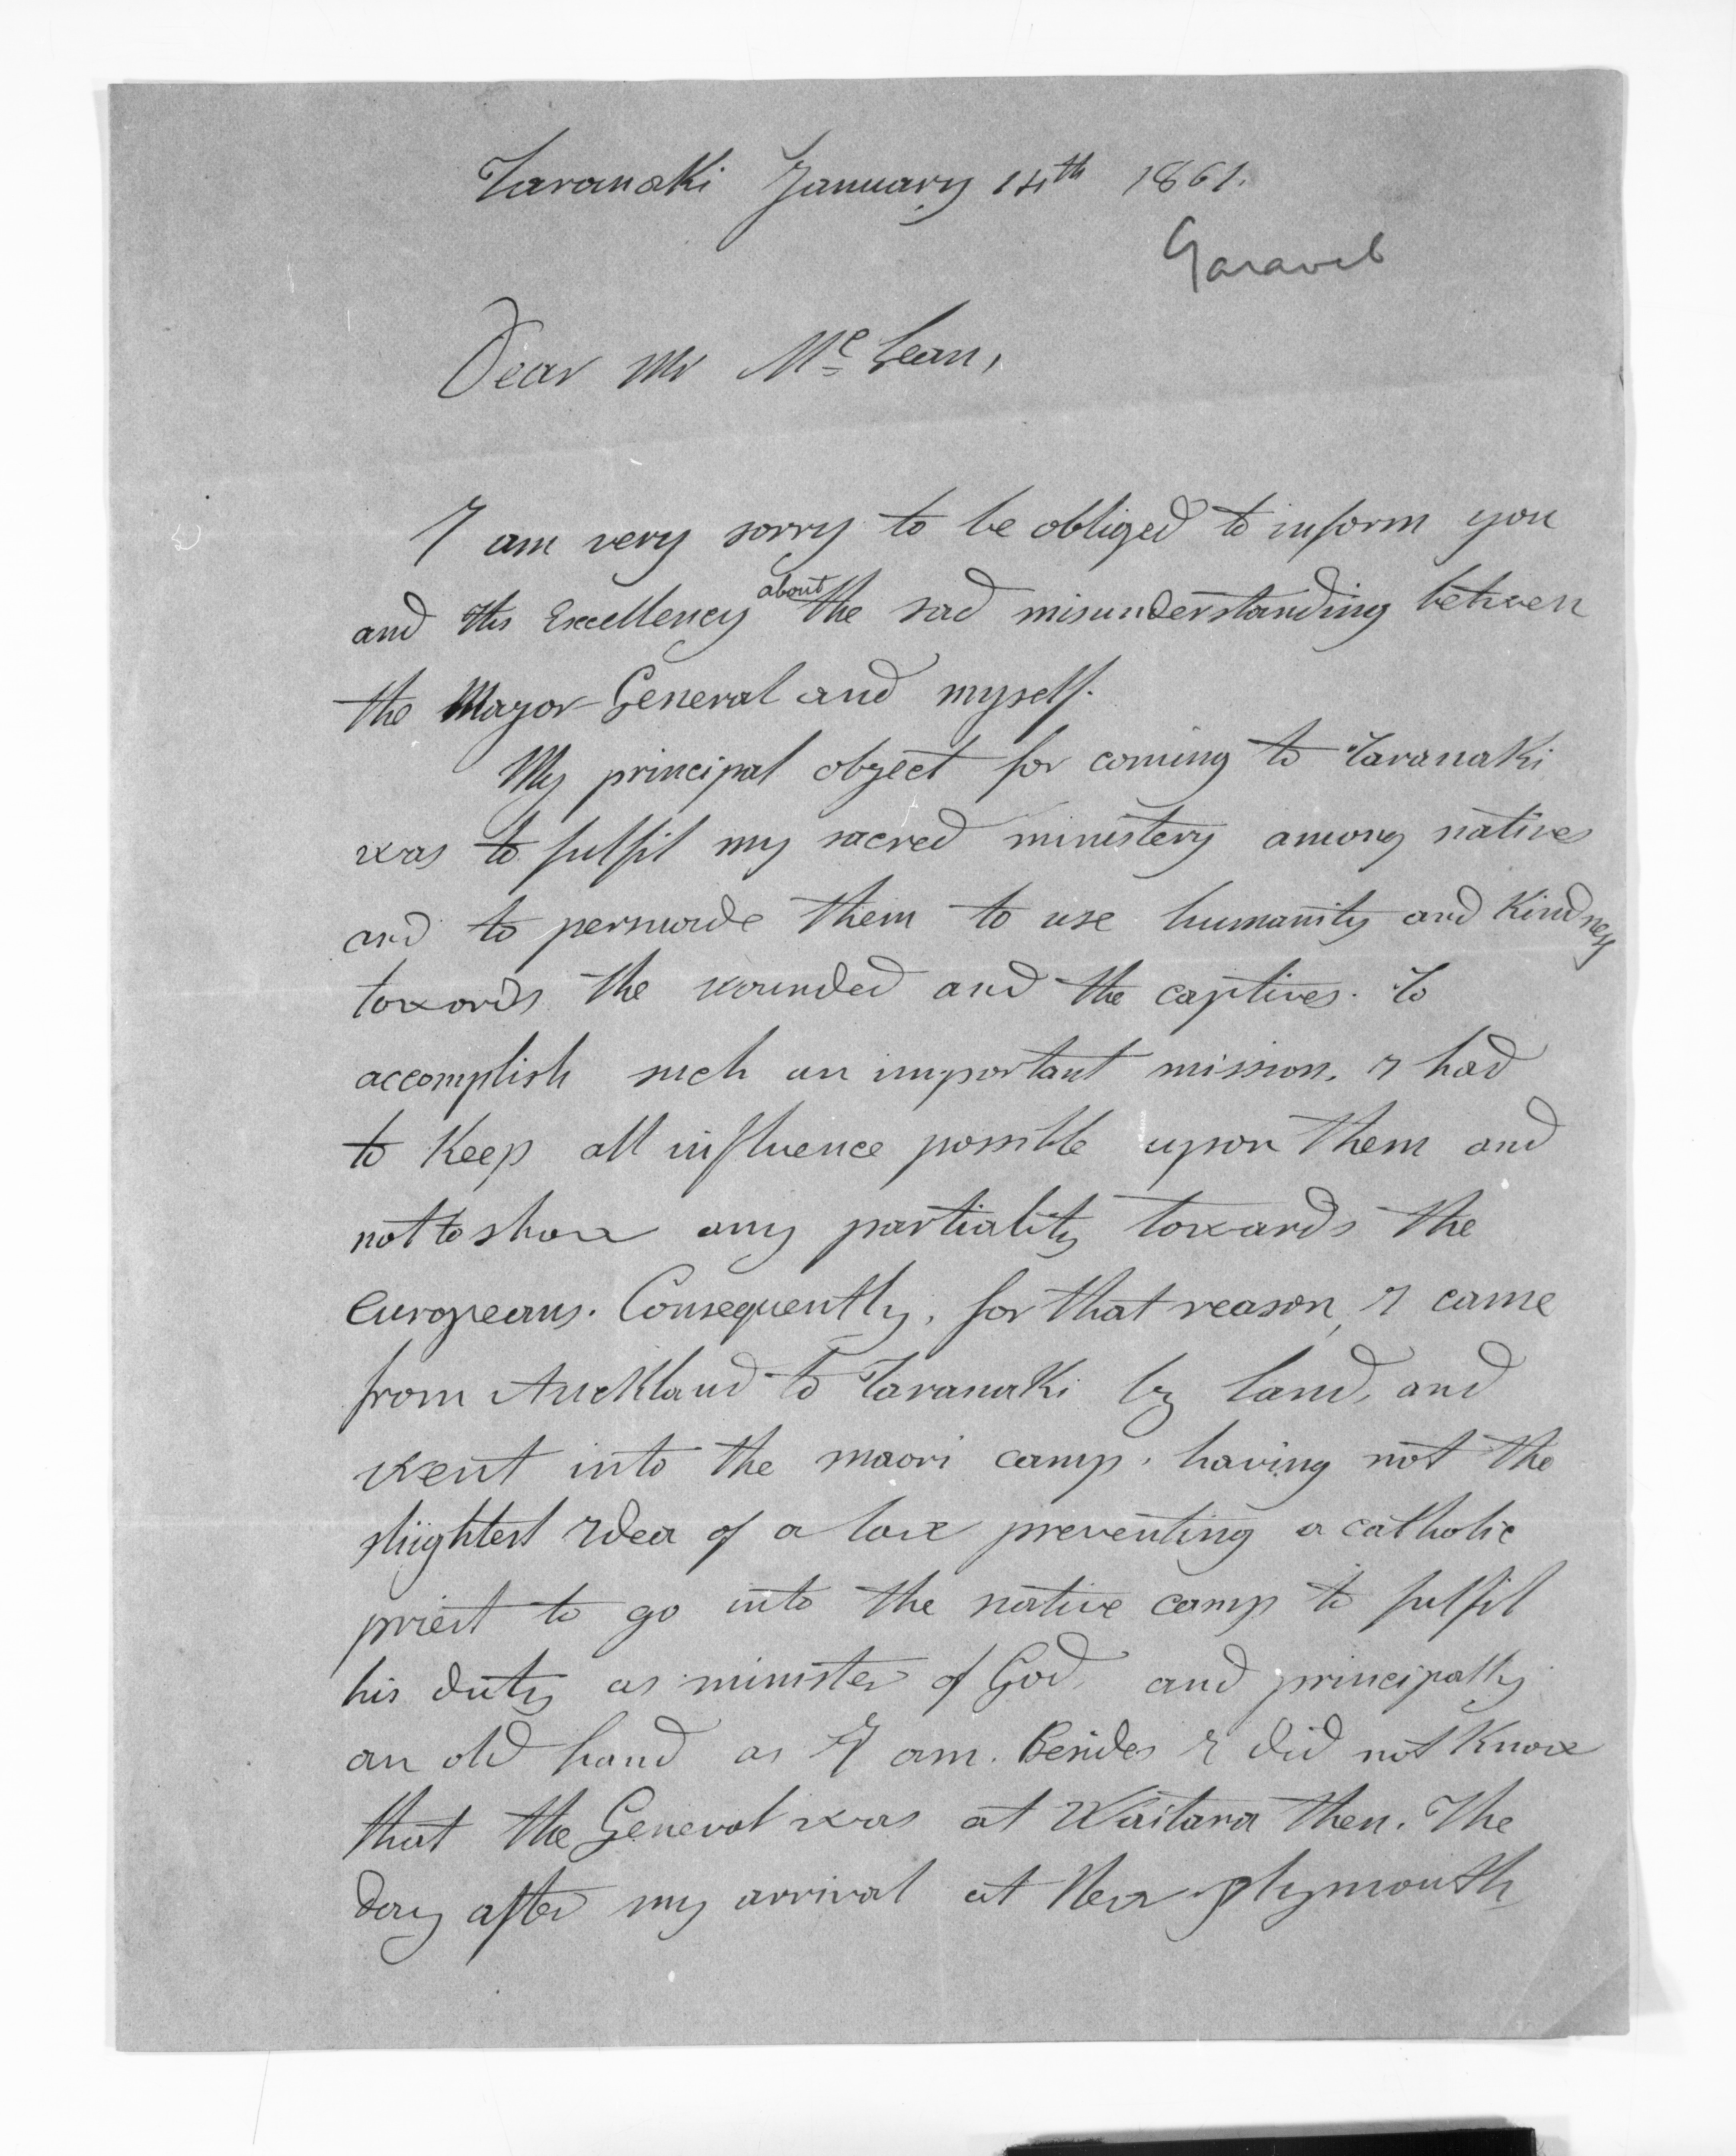 Taranaki January 14th 1861.
Garavel
Dear Mr McLean,
I am very sorry to be obliged to inform you
and His Excellency about the sad misunderstanding between
the Major General and myself.
My principal object for coming to Taranaki
was to fulfil my sacred ministery among natives
and to persuade them to use humanity and Kindness
towards the wounded and the captives. To
accomplish such an important mission, I had
to Keep all influence possible upon them and
not to show any partiality towards the
europeans. Consequently, for that reason, I came
from Auckland to Taranaki by land, and
went into the maori camp, having not the
slightest Idea of a law preventing a catholic
priest to go into the native camp to fulfil
his duty as minister of God, and principally
an old hand as I am. Besides I did not Know
that the General was at Waitara then. The
day after my arrival at New plymouth